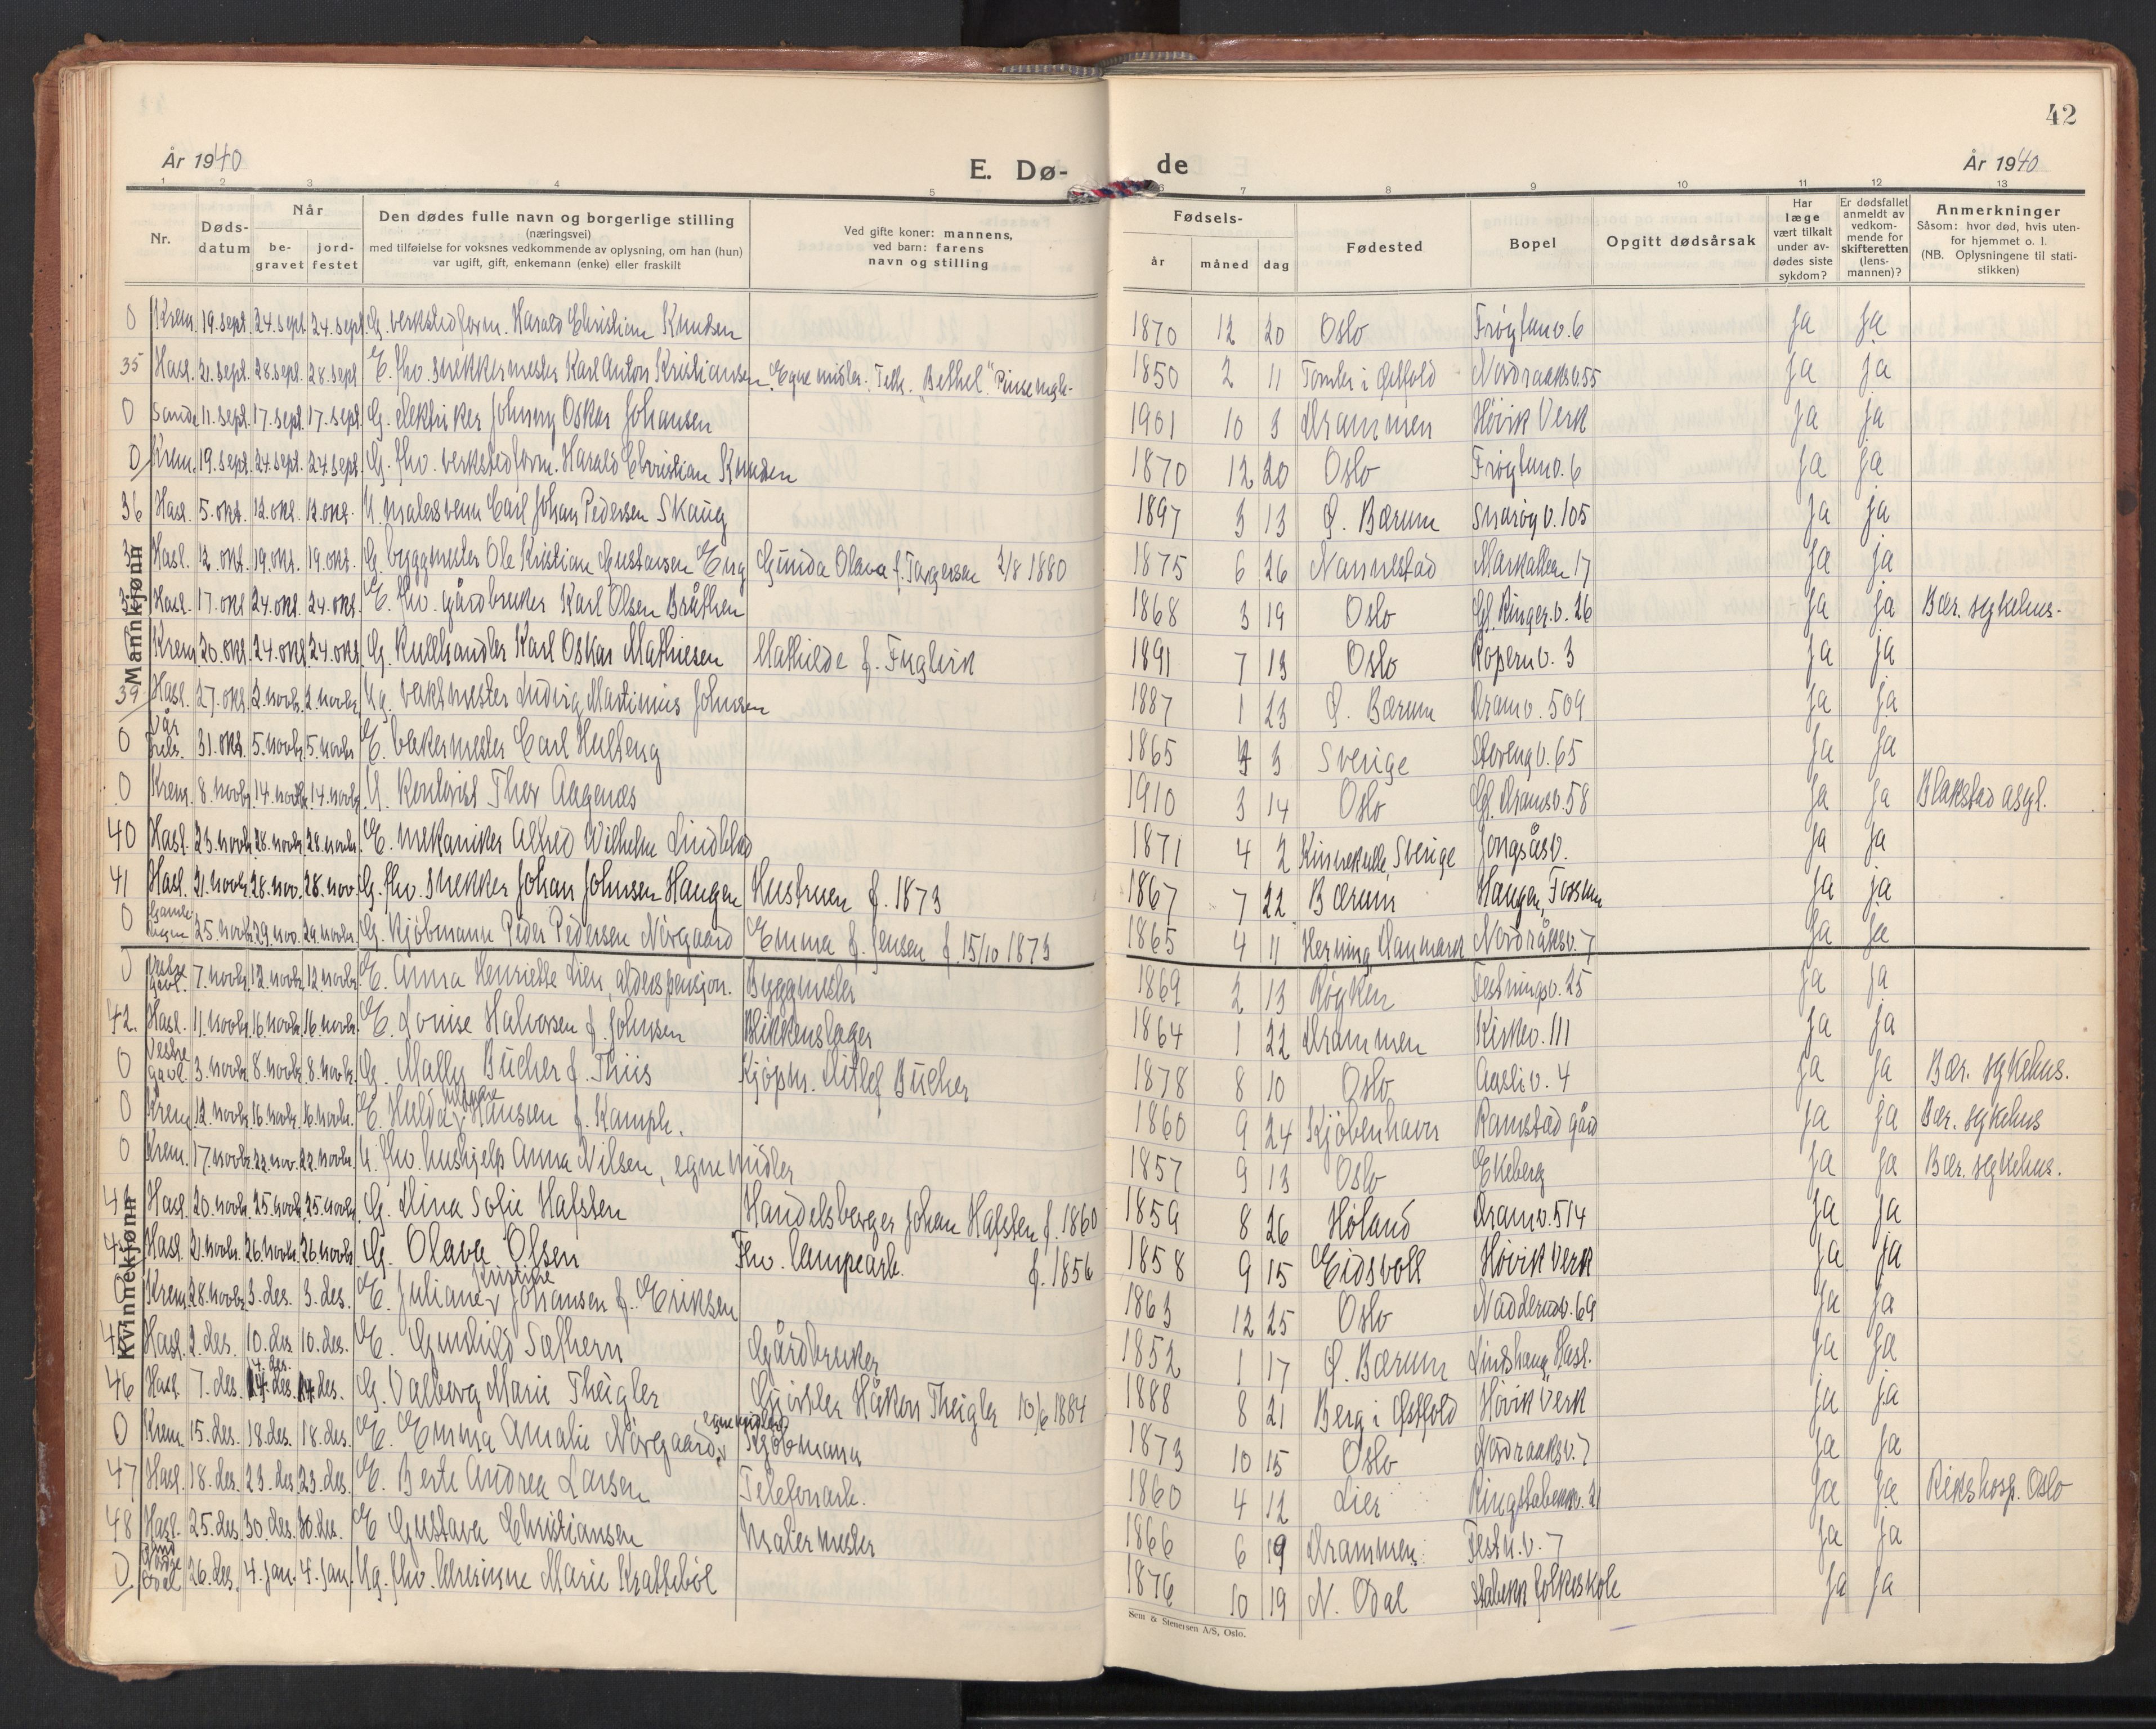 42
År 1940
E. Dø-
de
År 1940
1 2 3 4 5 6 7 8 9 10 11 12 13
Nr.
Døds-
datum
Når
be-
gravet
jord-
festet
Den dødes fulle navn og borgerlige stilling
(næringsvei)
med tilføielse for voksnes vedkommende av oplysning, om han (hun)
var ugift, gift, enkemann (enke) eller fraskilt
Ved gifte koner: mannens,
ved barn: farens
navn og stilling
Fødsels-
år måned dag
Fødested
Bopel
Opgitt dødsårsak
Har
læge
vært tilkalt
under av-
dødes siste
sykdom?
Er dødsfallet
anmeldt av
vedkom-
mende for
skifteretten
(lens-
mannen)?
Anmerkninger
Såsom: hvor død, hvis uten-
for hjemmet o. l.
(NB. Oplysningene til stati-
stikken)
Mannkjønn
0 Krem. 19. sept. 24. sept 24. sept G. verkstedform. Harald Christian Knudsen 1870 12 20 Oslo 6 ja ja
35 Hasl. 21. sept. 28. sept. 28. sept E. fhv. snekkermester Karl Anton Kristiansen. Egne midler. "Bethel" 1850 2 11 Tomter i Østfold Nordraaksv. 55 ja ja
0 Sande 11. sept. 17. sept. 17. sept. G. elektriker Johnny Oskar Johansen 1901 10 3 Drammen Høvik Verk ja ja
0 Krem. 19. sept. 24. sept. 24. sept. G. fhv. verkstedform. Harald Christian Knudsen 1870 12 20 Oslo 6 ja ja
36 Hasl. 5. okt. 12. okt. 12. okt. U. malersvenn Carl Johan Pedersen Skaug 1897 3 13 Ø. Bærum Snarøyv. 105 ja ja
Hasl. 12. okt. 19. okt. 19. okt. G. byggmester Ole Kristian Gustavsen Eng Gunda Olava f. Torgersen 2/8 1880 1875 6 26 Nannestad Markalleen 17 ja ja
Hasl. 17. okt 24. okt. 24. okt. E. fhv. gårdbruker Karl Olsen Bråthen 1868 3 19 Oslo Gl. Ringer. v. 26 ja ja Bær. sykehus.
Krem 20. okt. 24. okt 24. okt G. Kullhandler Karl Oskar Mathiesen Mathilde f. Fuglvik 1891 7 13 Oslo Kopernv. 3 ja ja
39 Hasl. 27. okt 2. novbr. 2. novbr. Ug. verksmester Ludvig Martinius Johnsen 1887 1 23 Ø. Bærum Dramv. 509 ja ja
0 Vår Frels. 31. okt. 5. novbr 5. novbr E. bakermester Carl Hulteng 1865 3 Sverige Storengv. 65 ja ja
0 Krem. 8. novbr. 14. novbr. 14. novbr. U. Kontorist Thor Aagenæs 1910 3 14 Oslo Gl. Dramsv. 58 ja ja Blakstad asyl.
40 Hasl. 23. novbr. 28. novbr. 28. novbr. E. mekaniker Alfred Wilhelm Lindblad 1871 4 2 Kinnekulle, Sverige Jongsåsv. ja ja
41 Hasl. 21. novbr. 28. nov. 28. nov G. fhv. snekker Johan Johnsen Haugen Hustruen f. 1873 1867 7 22 Bærum Haugen, Fossum ja ja
0 25. novbr. 29. nov. 29. novbr. G. Kjøbmann Peder Pedersen Nørgaard Emma f. Jensen f. 15/10 1873 1865 4 11 Herning Danmark Nordråksv. 7 ja ja
Kvinnekjønn
0 Vestre gravl. 7. novbr. 12. novbr. 12. novbr. E. Anna Henriette Lien, alderspensjon. Byggmester 1869 2 13 Røyken Festningsv. 25 ja ja
42. Hasl. 11. novbr. 16. novbr. 16. novbr. E. Louise Halvorsen f. Johnsen Blikkenslager 1864 1 22 Drammen Kirkev. 111 ja ja
0 Vestre gravl. 3. novbr. 8. novbr. 8. novbr. G. Mally Bucher f. Thiis Kjøpm. Ditlef Bucher 1878 8 10 Oslo 4 ja ja Bær. sykehus.
0 Krem. 12. novbr. 16. novbr. 16. novbr. E. Hulda Hanssen f. Kamph. 1860 9 24 Kjøbenhavn Ramstad gård ja ja Bær. sykehus
0 Krem. 17. novbr. 22. nov. 22. novbr. U. fhv. hushjelp Anna Nilsen, egne midler 1857 9 13 Oslo Ekeberg ja ja Bær. sykehus.
Hasl. 20. novbr. 25. novbr. 25. novbr. G. Dina Sofie Hafsten Handelsborger Johan Hafsten f. 1860 1859 8 26 Høland Dramv. 514 ja ja
Hasl. 21. novbr. 26. novbr. 26. novbr G. Olava Olsen Fhv. lampearb. f. 1856 1858 9 15 Eidsvoll Høvik Verk ja ja
0 Krem. 28. novbr. 3. des. 3. des. E. Juliane Kristine Johansen f. Eriksen 1863 12 25 Oslo Nadderudv. 69 ja ja
Hasl. 2. des. 10. des. 10. des. E. Gunhild Sæthern Gårdbruker 1852 1 17 Ø. Bærum Lindshaug, Hasl. ja ja
46 Hasl. 7. des. 14. des. 14. des. 14. des. G. Valborg Marie Theigler Gjørtler Håkon Theigler 10/6 1884 1888 8 21 Berg i Østfold Høvik Verk ja ja
0 Krem. 15. des. 18. des. 18. des. E. Emma Amalie Nørgaard, egne midler, Kjøbmann 1873 10 15 Oslo Nordraaksv. 7 ja ja
47 Hasl. 18. des. 23. des. 23. des. E. Berte Andrea Larsen Telefonarb. 1860 4 12 Lier Ringstabekkv. 21 ja ja Rikshosp. Oslo
48 Hasl. 25. des. 30. des. 30. des. E Gustava Christiansen Malermester 1866 6 19 Drammen Festn. v. 7 ja ja
0 Nordre Odal 26. des. 4. jan. 4. jan. Ug. fhv. Marie Krattebøl 1876 10 19 N. Odal Stabekk folkeskole ja ja
Sem & Stenersen A/S, Oslo.